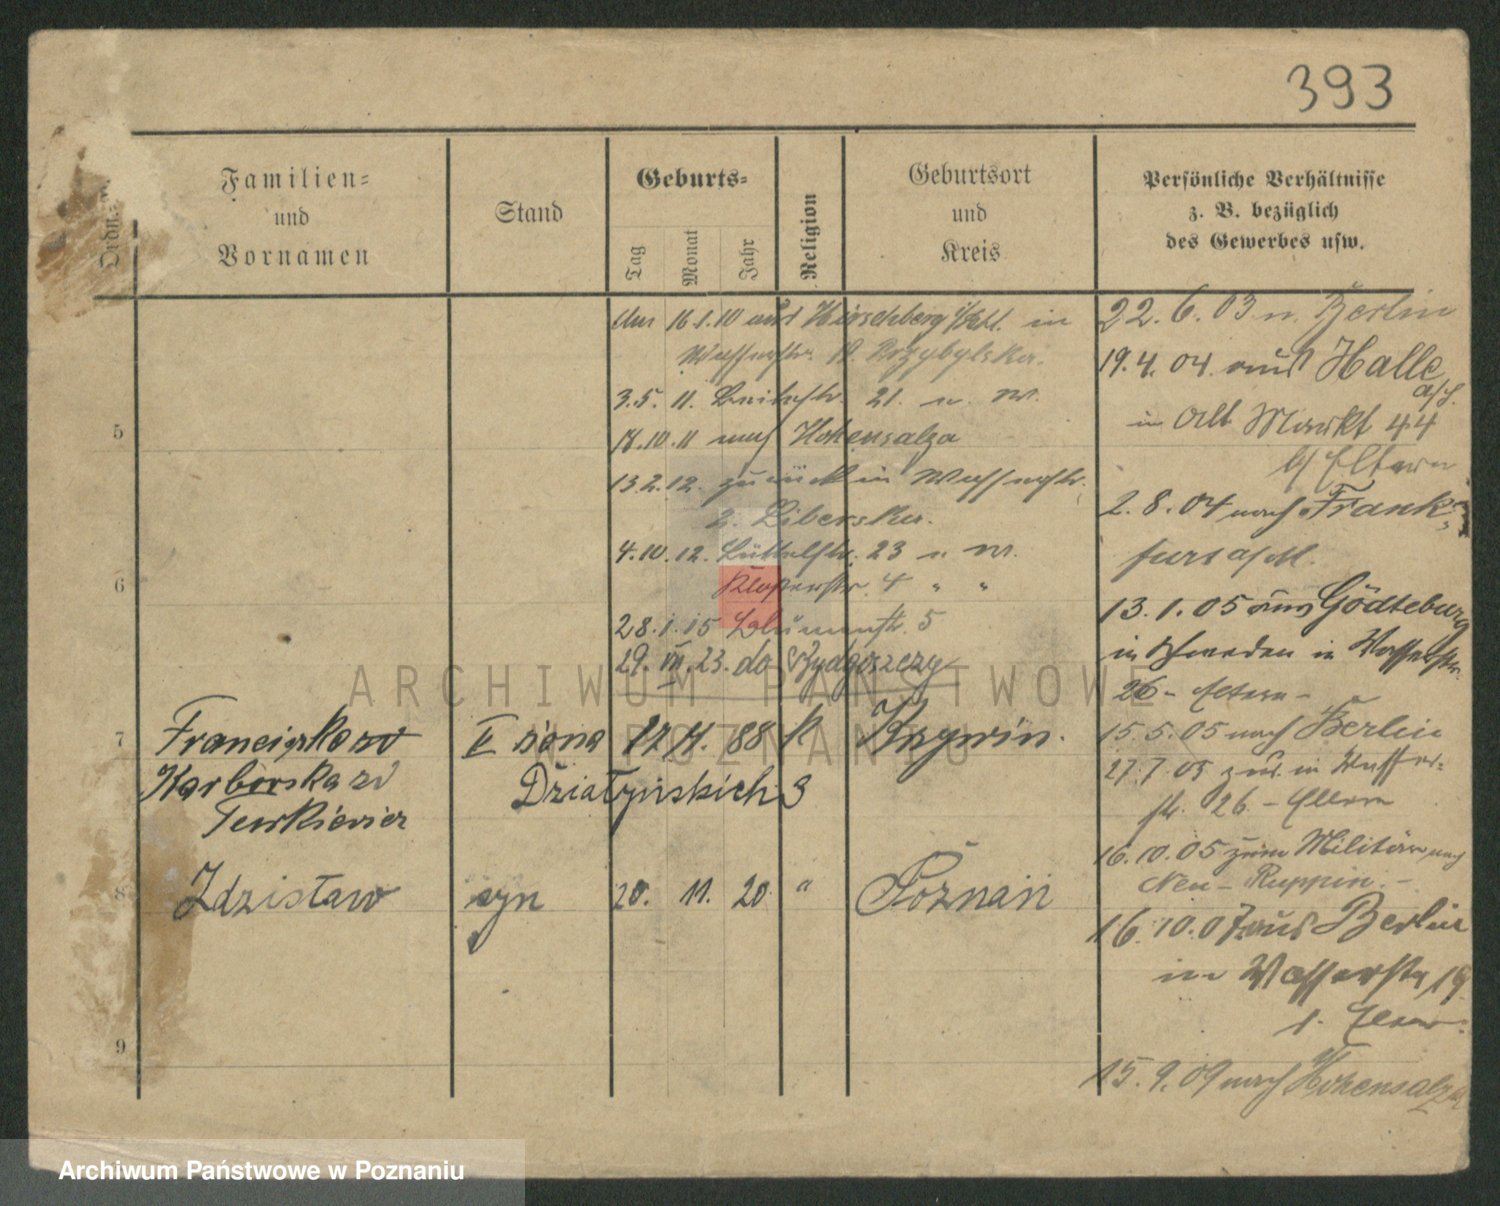 393
Ordn.
Familien=
und
Vornamen
Stand
Geburts=
Tag
Monat
Jahr
Religion
Geburtsort
und
Kreis
Persönliche Verhältnisse
z. B. bezüglich
des Gewerbes usw.
16.1.10 aus Hirschberg in
Wasserstr. Przybylska.
3.5.11. Breitestr. 21. u. W.
18.10.11 nach Hohensalza
13.2.12. zurück in Wasserstr.
2. Liberska.
4.10.12. Büttelstr. 23 u W.
Klosterstr. 4 " "
28.1.15 Blumenstr. 5
29.VII.23. do Bydgoszczy
5
6
7
Franciszka
II żona 17 88 k Krzywin.
Działyńskich 3
8
Zdzisław syn 20. 11. 20 " Poznań
9
22.6.03 n. Berlin
19.4.04. aus Halle
a/S.
in Alt Markt 44
b/ Eltern
2.8.04 nach Frank-
furt a/M.
13.1.05 aus Gödteburg
in Schweden in Wasserstr.
26 - Eltern -
15.5.05 nach Berlin
27.7.05 zur. in Wasser=
str. 26. - Eltern
16.10.05 zum Militär nach
Neu-Ruppin. -
16.10.07 aus Berlin
in Wasserstr. 19
Eltern.
15.9.09 nach Hohensalza
ARCHIWUM PAŃSTWOWE
W POZNANIU
Archiwum Państwowe w Poznaniu